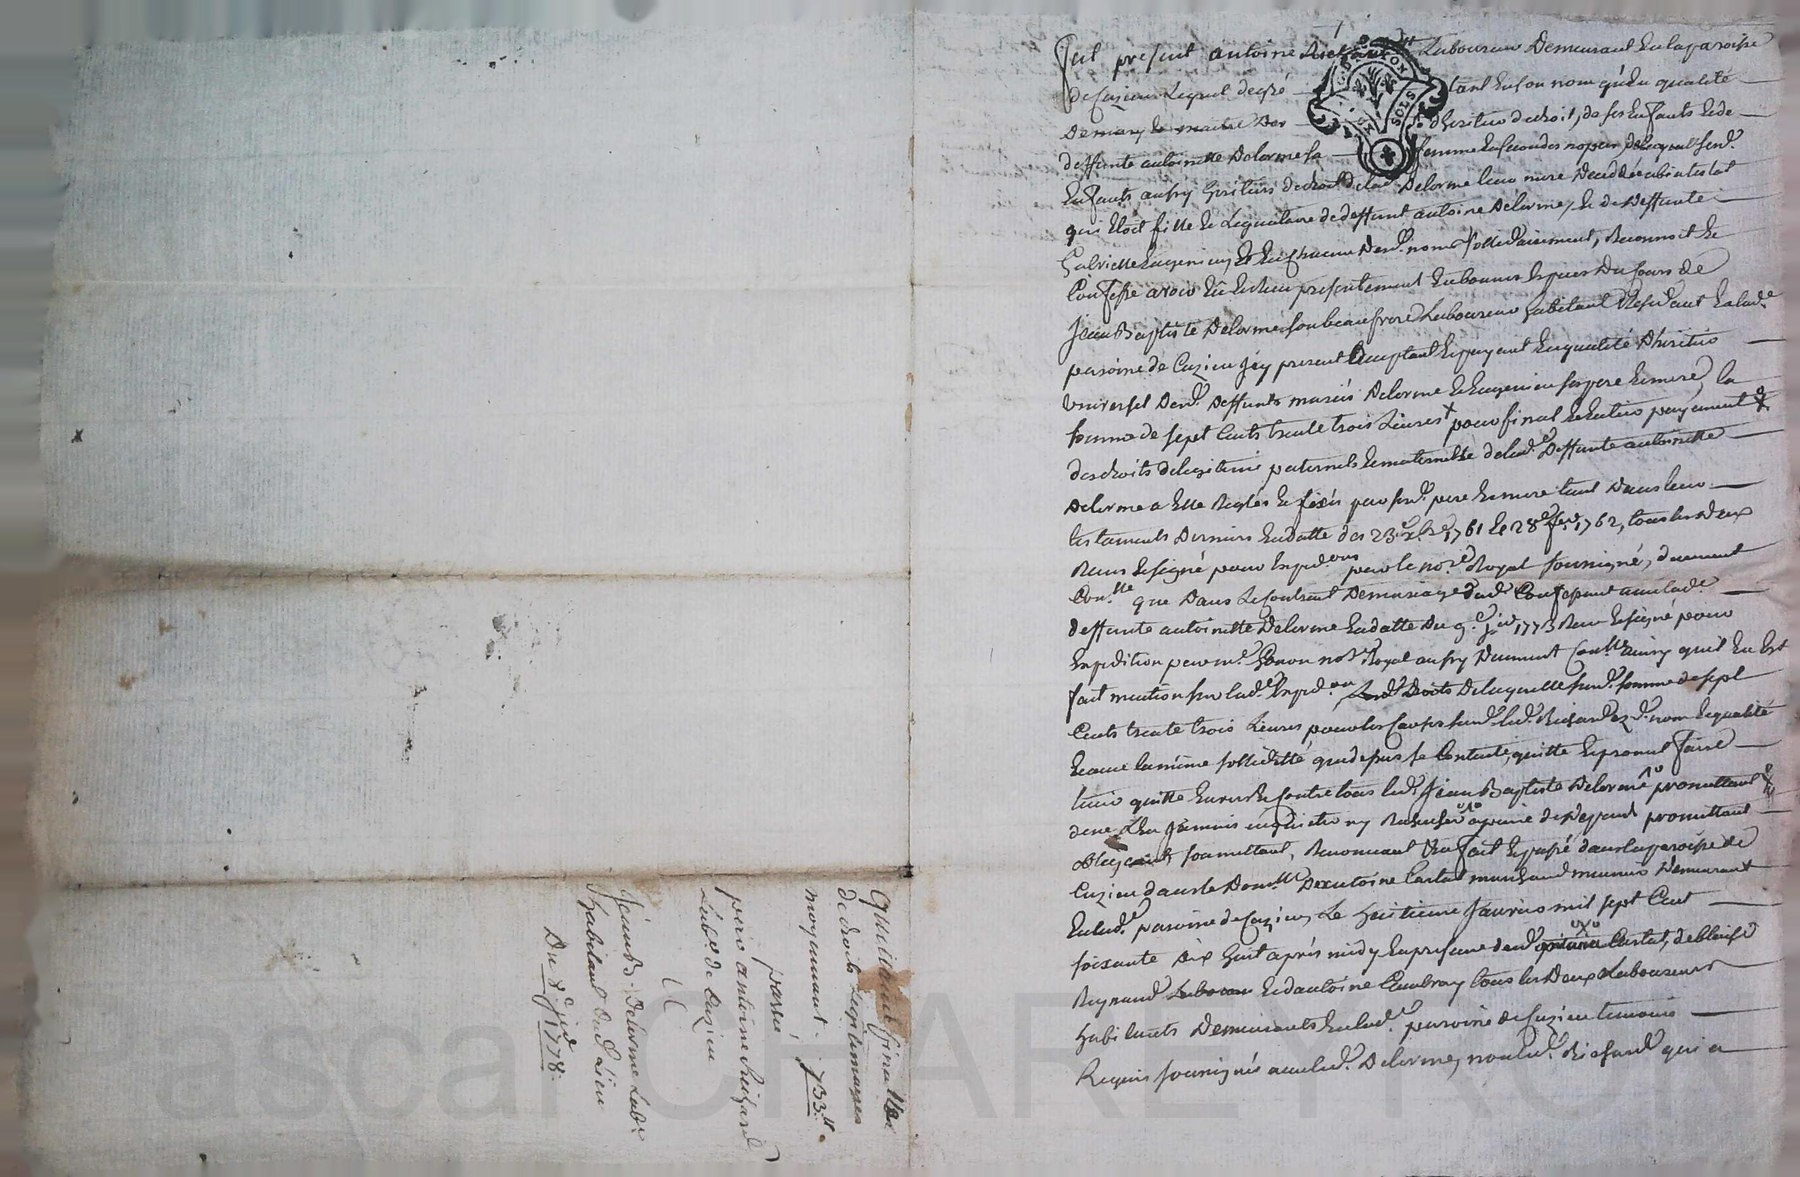 fut present antoine Richard Laboureur Demeurant En la paroisse
de Cuzieu Lequel de gré tant En son nom qu'En qualité
De mary Le maitre Des d'heritier de droit, de ses Enfants Et de
deffunte antoinette Delorme sa femme
Enfants aussy heritiers de droit de lad. Delorme leur mere Decédée abintestat
qui Etoit fille Et Legataire de deffunt antoine Delorme, Et de Deffunte
Gabrielle Et En Chacun Desd. noms sollidairement, Reconnoit Et
Confesse avoir Eü Et Reçu presentement En bonnes Especes Du Cours de
Jean Baptiste Delorme son beaufrere Laboureur habitant Residant En lad.e
paroisse de Cuzieu Icy present acceptant Et payant En qualité D'heritier
Universel Desd. Deffunts mariés Delorme Et ses pere Et mere, la
somme de sept Cents trente trois Livres pour final Et Entier payement
des droits de legitime paternels Et maternels de lad.e Deffunte antoinette
Delorme a Elle Reglés Et fixés par sesd. pere Et mere tant Dans leurs
testaments Derniers En datte des 23.e x.bre 1761 Et 28.e fev. 1762, tous les Deux
Reçus Et signé pour Exped.ons par le no.re Royal soussigné, duement
Con.lle que Dans Le Contrat De mariage dud. Confessant avec lad.e
deffunte antoinette Delorme En datte Du 9.e 1773 Reçu Et signé pour
Expedition par m.e no.re Royal aussy Duement Con.llé ainsy qu'il En Est
fait mention sur lad.e Exped.on De laquelle susd. somme de sept
Cents trente trois Livres pour les Causes susd. led. Richard Ezd. nom Et qualité
Et avec la même sollidité que dessus se Contente, quitte Et promet faire
tenir quitte Envers Et Contre tous led. Jean Baptiste Delorme promettant
de ne L'En Jamais inquietter ny Rechercher a peine de Depens promettant
obligeant, soumettant, Renonceant &a fait Et passé dans la paroisse de
Cuzieu dans le Dom.lle D'antoine Cartal marchand meunier Demeurant
En lad.e paroisse de Cuzieu, Le huitieme Janvier mil sept Cent
soixante Dix huit après midy En presence dud. Cartal, de bleise
Reynaud Et d'antoine tous les Deux Laboureurs
habitants Demeurants En lad.e paroisse de Cuzieu temoins
Requis soussignés avec led. Delorme, non led. Richard qui a
Quittance finalle
de droits Legitimaires
moyennant . 733.ll
passé
par antoine Richard
Lab.r de Cuzieu
a
Jean B. Delorme Lab.r
habitant Dud. Lieu
Du 8.e Jv.r 1778.
ascal CHAREYRON